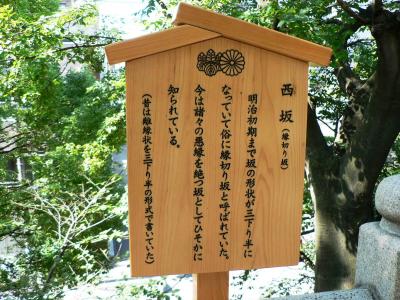 西坂(縁切り坂)
明治初期まで坂の形状が三下り半に
なっていて俗に縁切り坂と呼ばれていた。
今は諸々の悪縁を絶つ坂としてひそかに
知られている。
(昔は離縁状を三下り半の形式で書いていた)